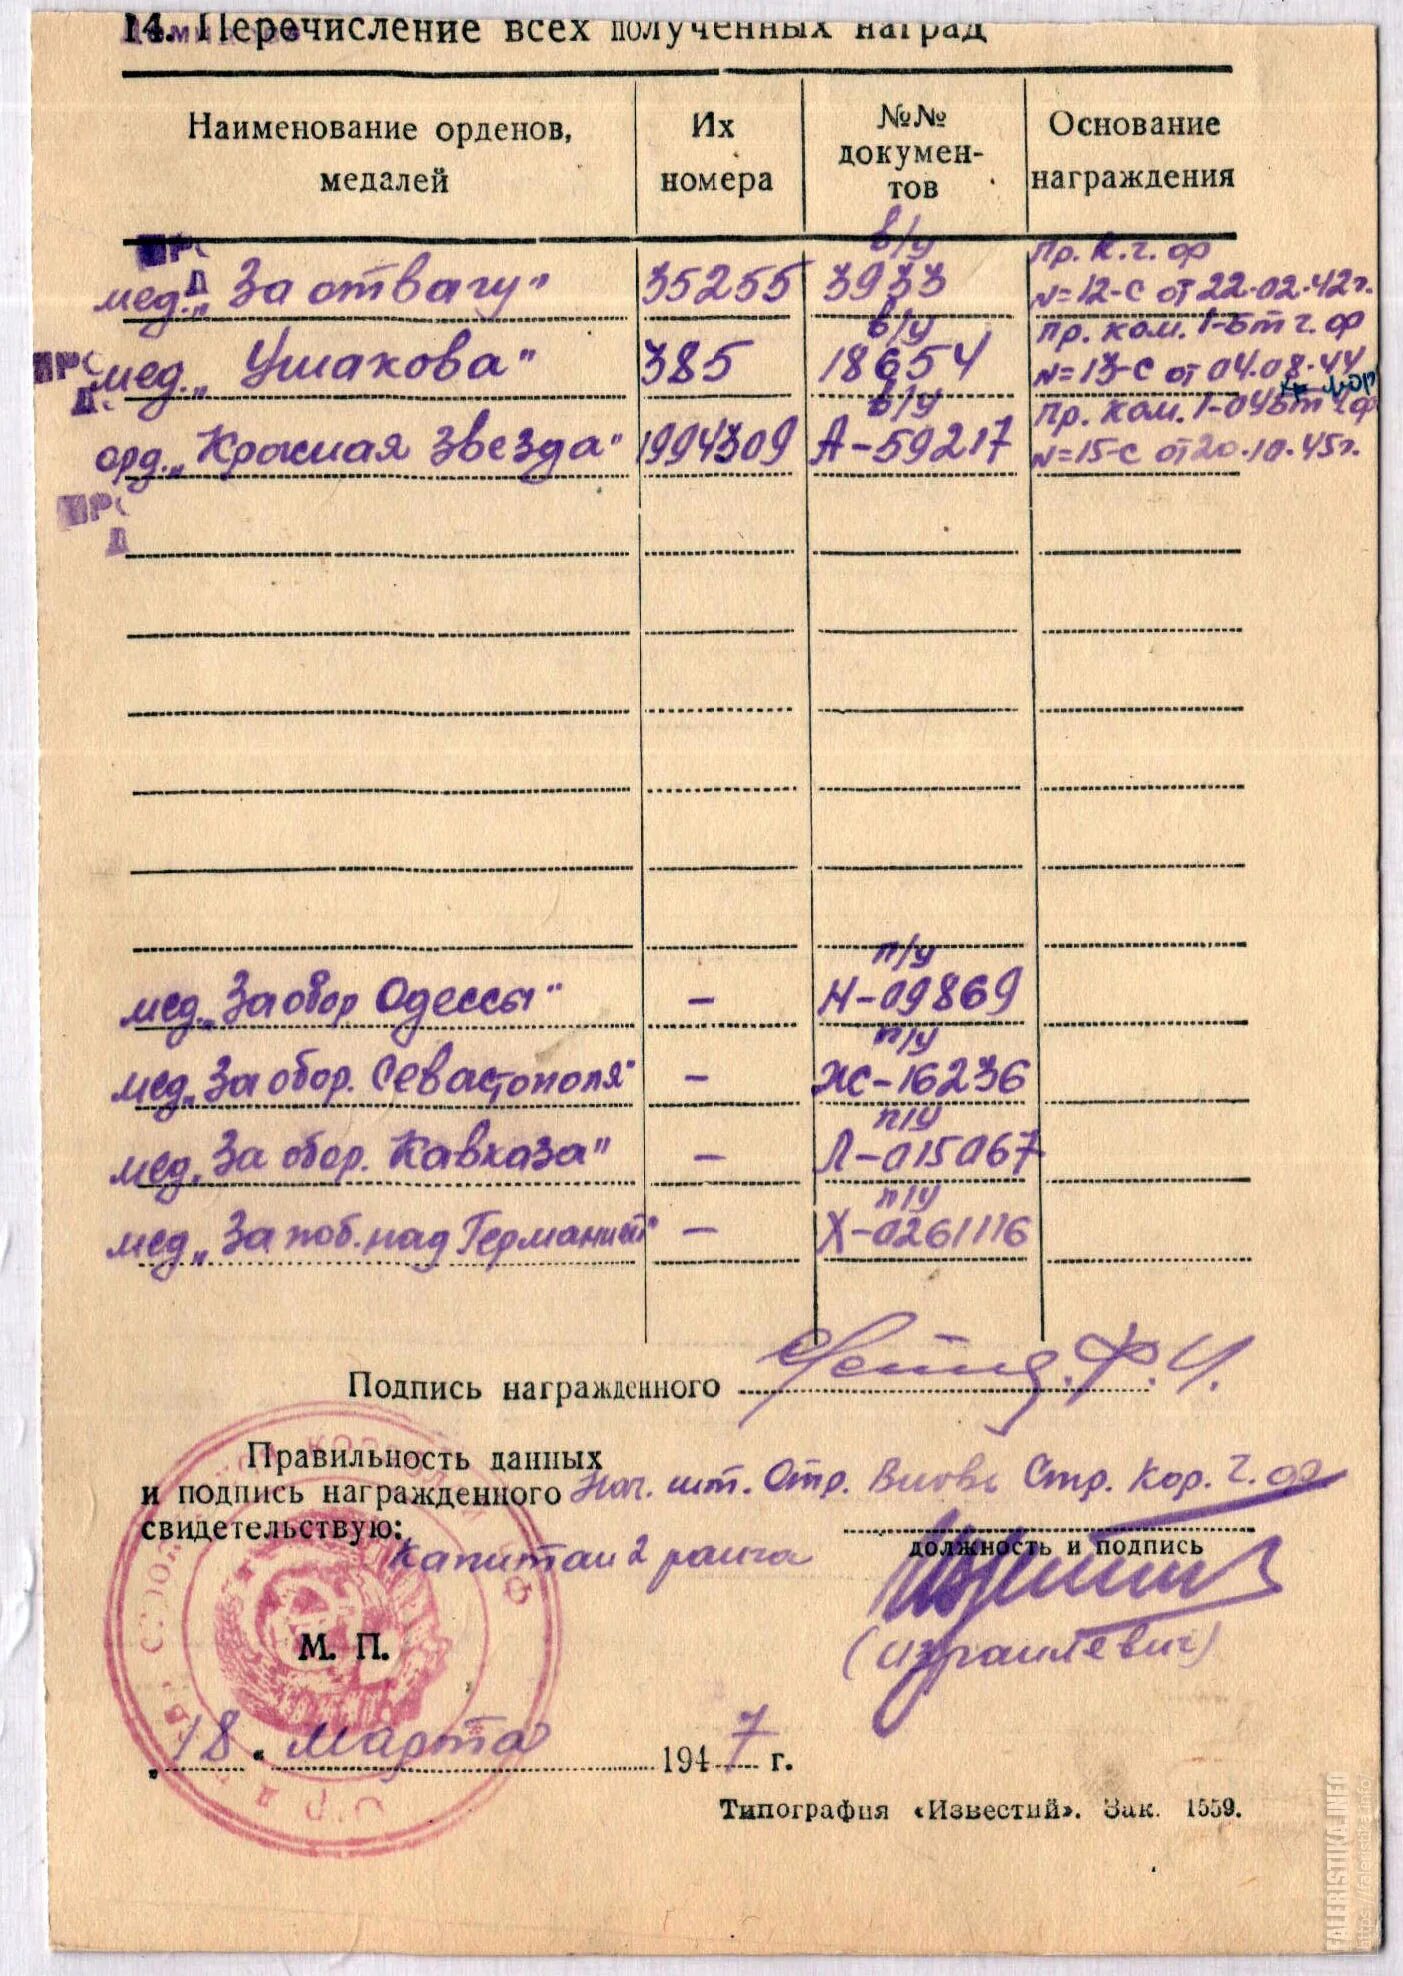 14. Перечисление всех полученных наград
Наименование орденов, медалей
Их номера
№№ докумен-тов
Основание награждения
мед. „За отвагу"
35255
в/у 3933
Пр. К. ч. ф
N=12-С от 22.02.42г.
мед. „Ушакова"
385
в/у 18654
Пр. ком. 1-Бт ч. ф
N=13-С от 04.08.44
орд. „Красная Звезда"
1994309
в/у А-59217
Пр. ком.
N=15-С от 20.10.45г.
мед. „За обор Одессы"
–
п/у Н-09869
мед. „За обор. Севастополя"
–
п/у Ж-16236
мед. „За обор. Кавказа"
–
п/у Л-015067
мед. „За поб. над Германией"
–
п/у Х-0261116
Подпись награжденного
Ф. И.
Правильность данных
и подпись награжденного Нач. шт. Отр. Вновь Стр. Кор. Ч. ф
свидетельствую:
должность и подпись
Капитан 2 ранга
(Израилевич)
М. П.
„18" марта 1947 г.
Типография «Известий». Зак. 1559.
FALERISTIKA.INFO
https://faleristika.info/